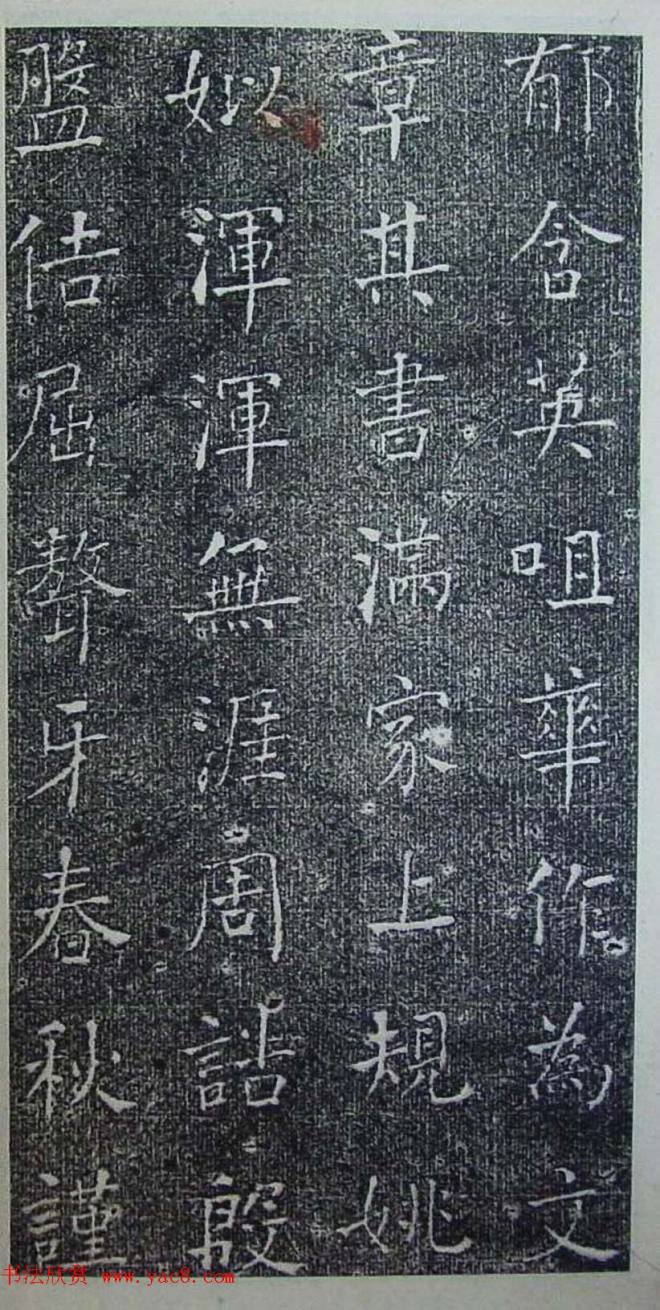 郁含英咀華作為文
章其書滿家上規姚
姒渾渾無涯周誥殷
盤佶屈聱牙春秋謹
书法欣赏 www.yac8.com